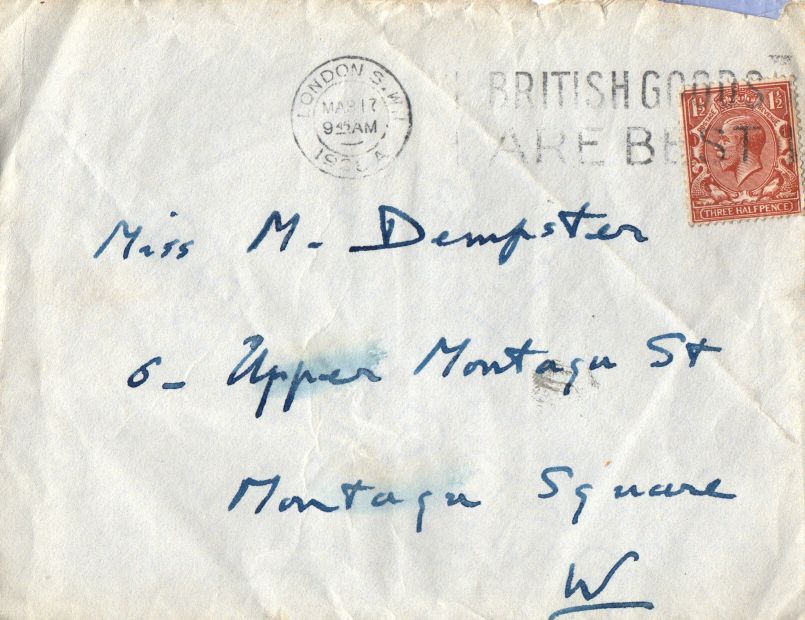 LONDON S.W.1
MAR 17
9 45 AM
BRITISH GOODS
ARE BEST
1½ 1½
THREE HALFPENCE
Miss M. Dempster
6 - Upper Montagu St
Montagu Square
W